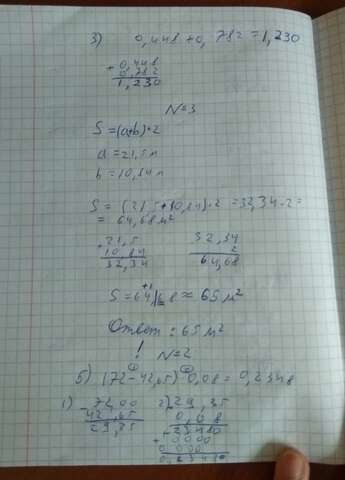 3) 0,448+0,782=1,230
+ 0,448
0,782
1,230
N=3
S=(a+b)·2
a=21,5м
b=10,84м
S=(21,5+10,84)·2=32,34·2=
=64,68м²
+ 21,5
10,84
32,34
32,34
2
64,68
S=64,68≈65м²
Ответ:65м²
! N=2
б) (72-42,65) 0,08=0,2348
1) - 72,00
42,65
29,35
2) 29,35
0,08
23480
+ 0000